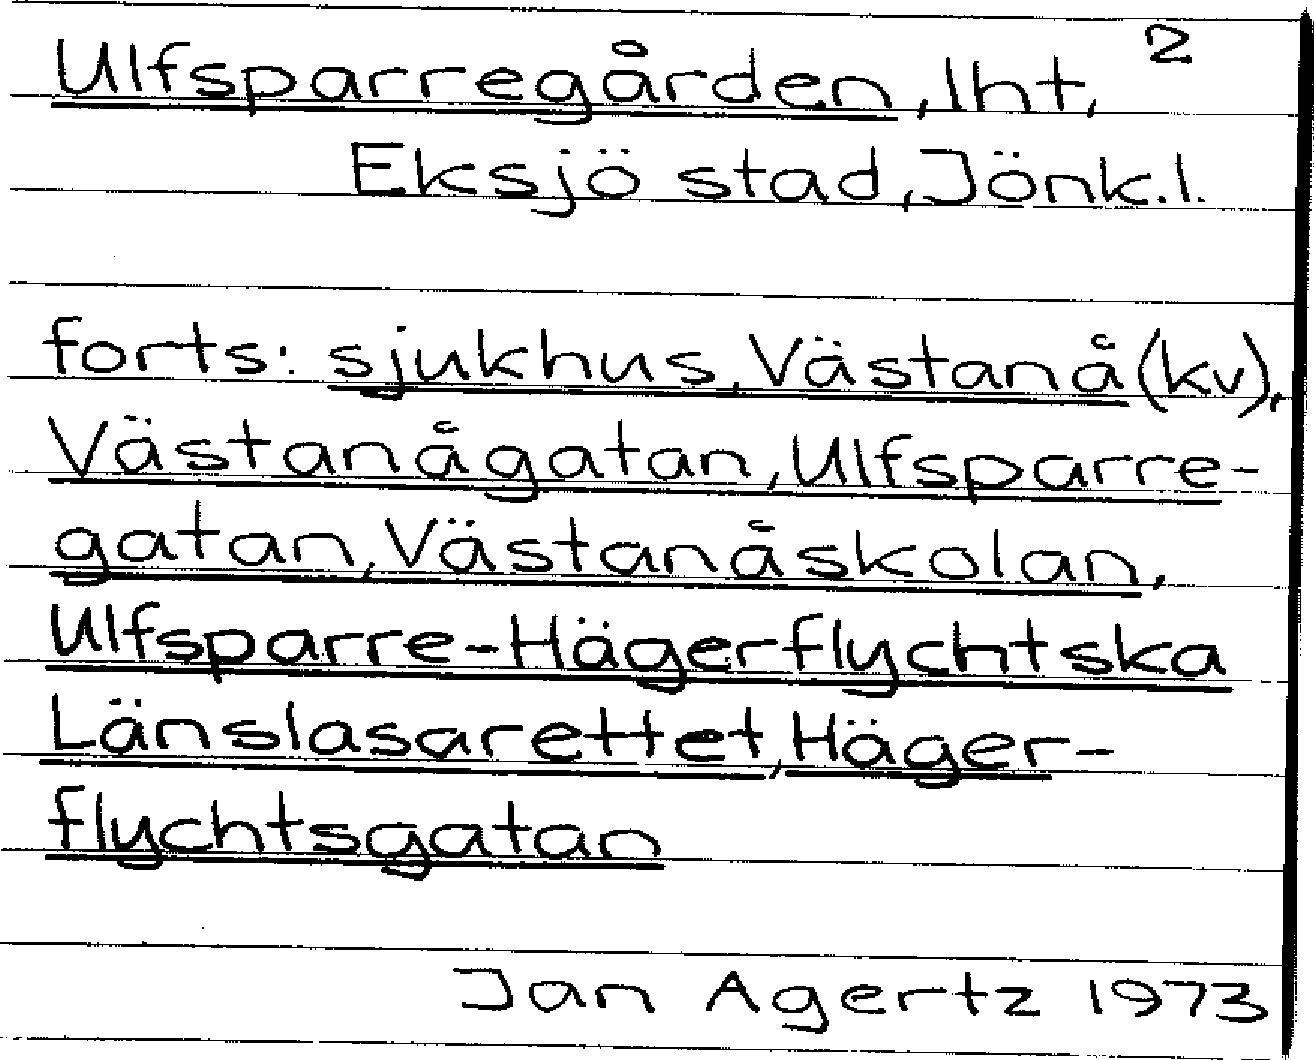 Ulfsparregården, lht, 2
Eksjö stad, Jönk.l.
forts: sjukhus, Västanå (kv),
Västanågatan, Ulfsparre-
gatan, Västanåskolan,
Ulfsparre-Hägerflychtska
Länslasarettet, Häger-
flychtsgatan
Jan Agertz 1973